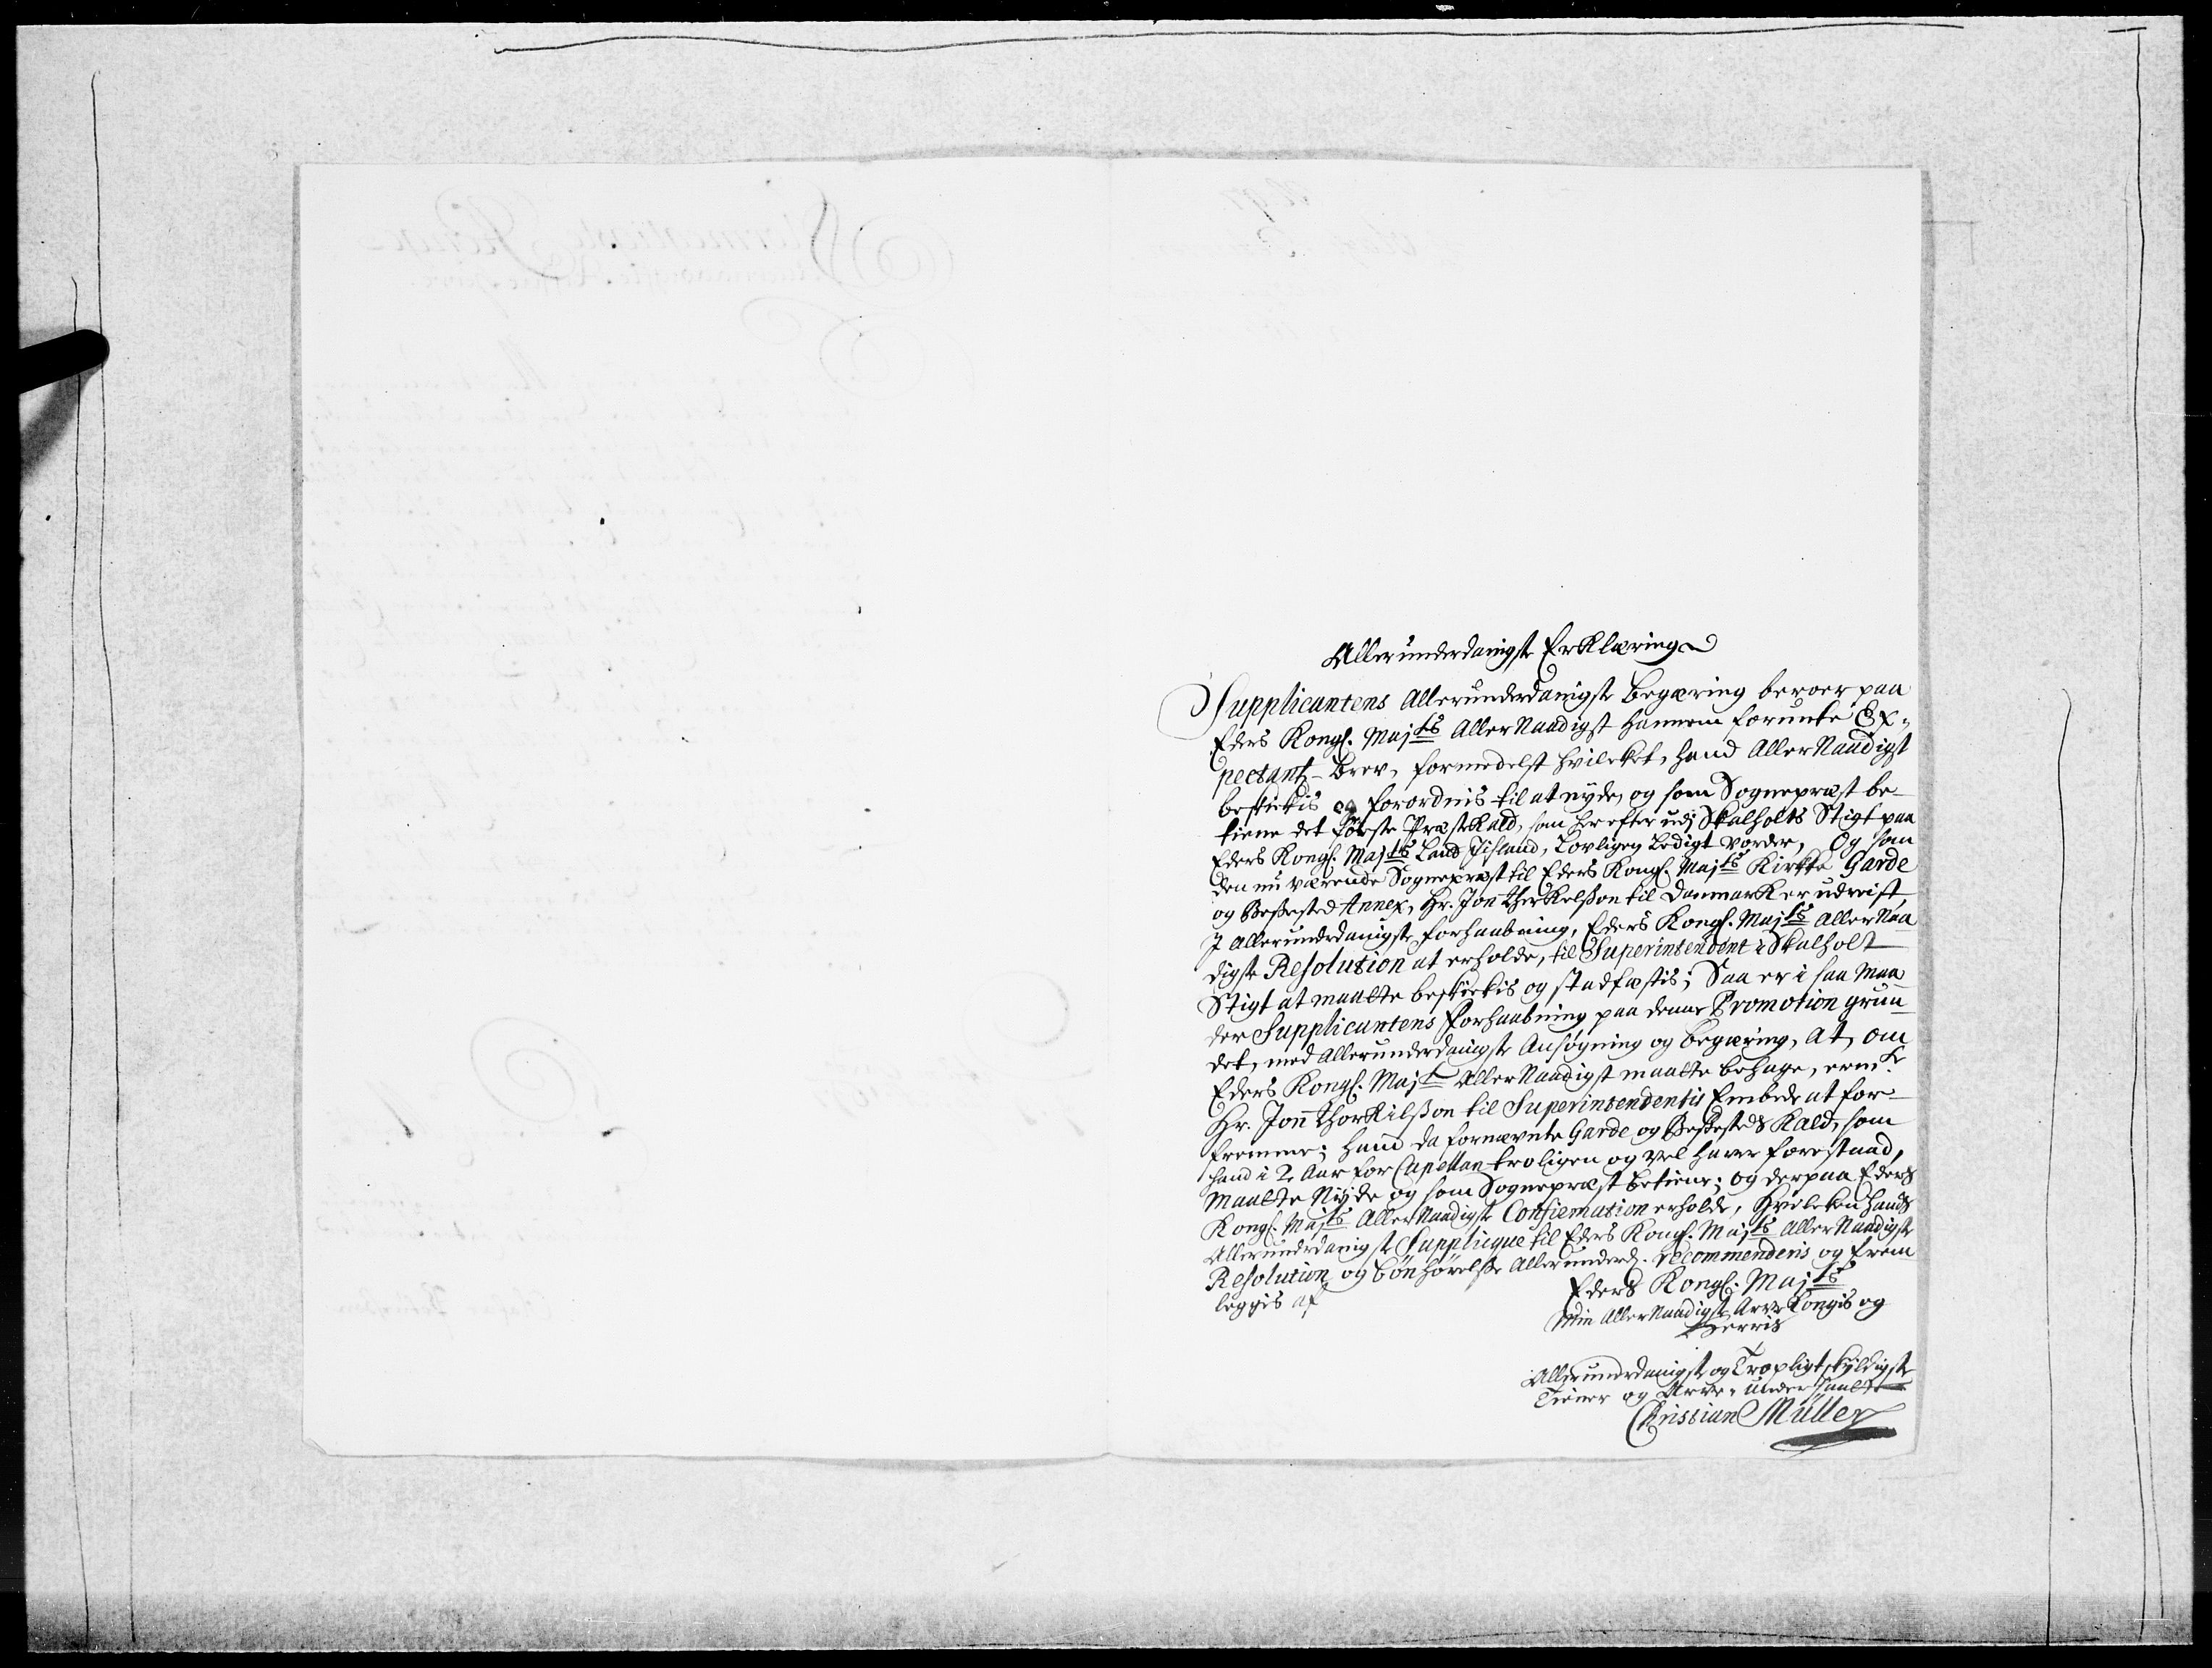 Allerunderdanigste Erklæring
Supplicantens Allerunderdanigste begæring beroer paa
Eders Kongl. Majts AllerNaadigst hannem forunte Ex-
pectantz-brev, formedelst hvilcket, hand AllerNaadigst
beskickis og forordnis til at nyde, og som Sognepræst be-
tiene det første Præstekald, som her efter udj Skalholts Stigt paa
Eders Kongl. Majts Land Jisland, Lovligen Ledigt vorder, Og som
den nu værende Sognepræst til Eders Kongl. Majts Kirkke Garde
og Bessested Annex, Hr. Jon Thorkelsson til Danmark er udreist,
I Allerunderdanigste forhaabning, Eders Kongl. Majts AllerNaa
digste Resolution at erholde, til Superintendent i Skalholt
Stigt at maatte beskickis og stadfæstis; Saa er i saa Maa
der Supplicantens Forhaabning paa denne Promotion grun
det, med Allerunderdanigste Ansøgning og begæring, At, om
Eders Kongl. Majt AllerNaadigst maatte behage, ermte
Hr. Jon Thorkilsson til Superintendentis Embede at for-
fremme; hand da fornævnte Garde og Bessesteds Kald, som
hand i 2 Aar for Capellan troligen og vel haver forestaad,
Maatte Nyde og som Sognepræst betiene; og derpaa Eders
Kongl. Majts AllerNaadigste Confirmation erholde, Hvilcken hands
Allerunderdanigste Supplicque til Eders Kongl. Majts AllerNaadigste
Resolution og bønhørelse Allerunderd. recommenderis og frem
leggis af
Eders Kongl. Majts
Min AllerNaadigste Arve Kongis og
Herris
Allerunderdanigste og Tropligtskyldigste
Tiener og Arve-undersaatt
Christian Müller